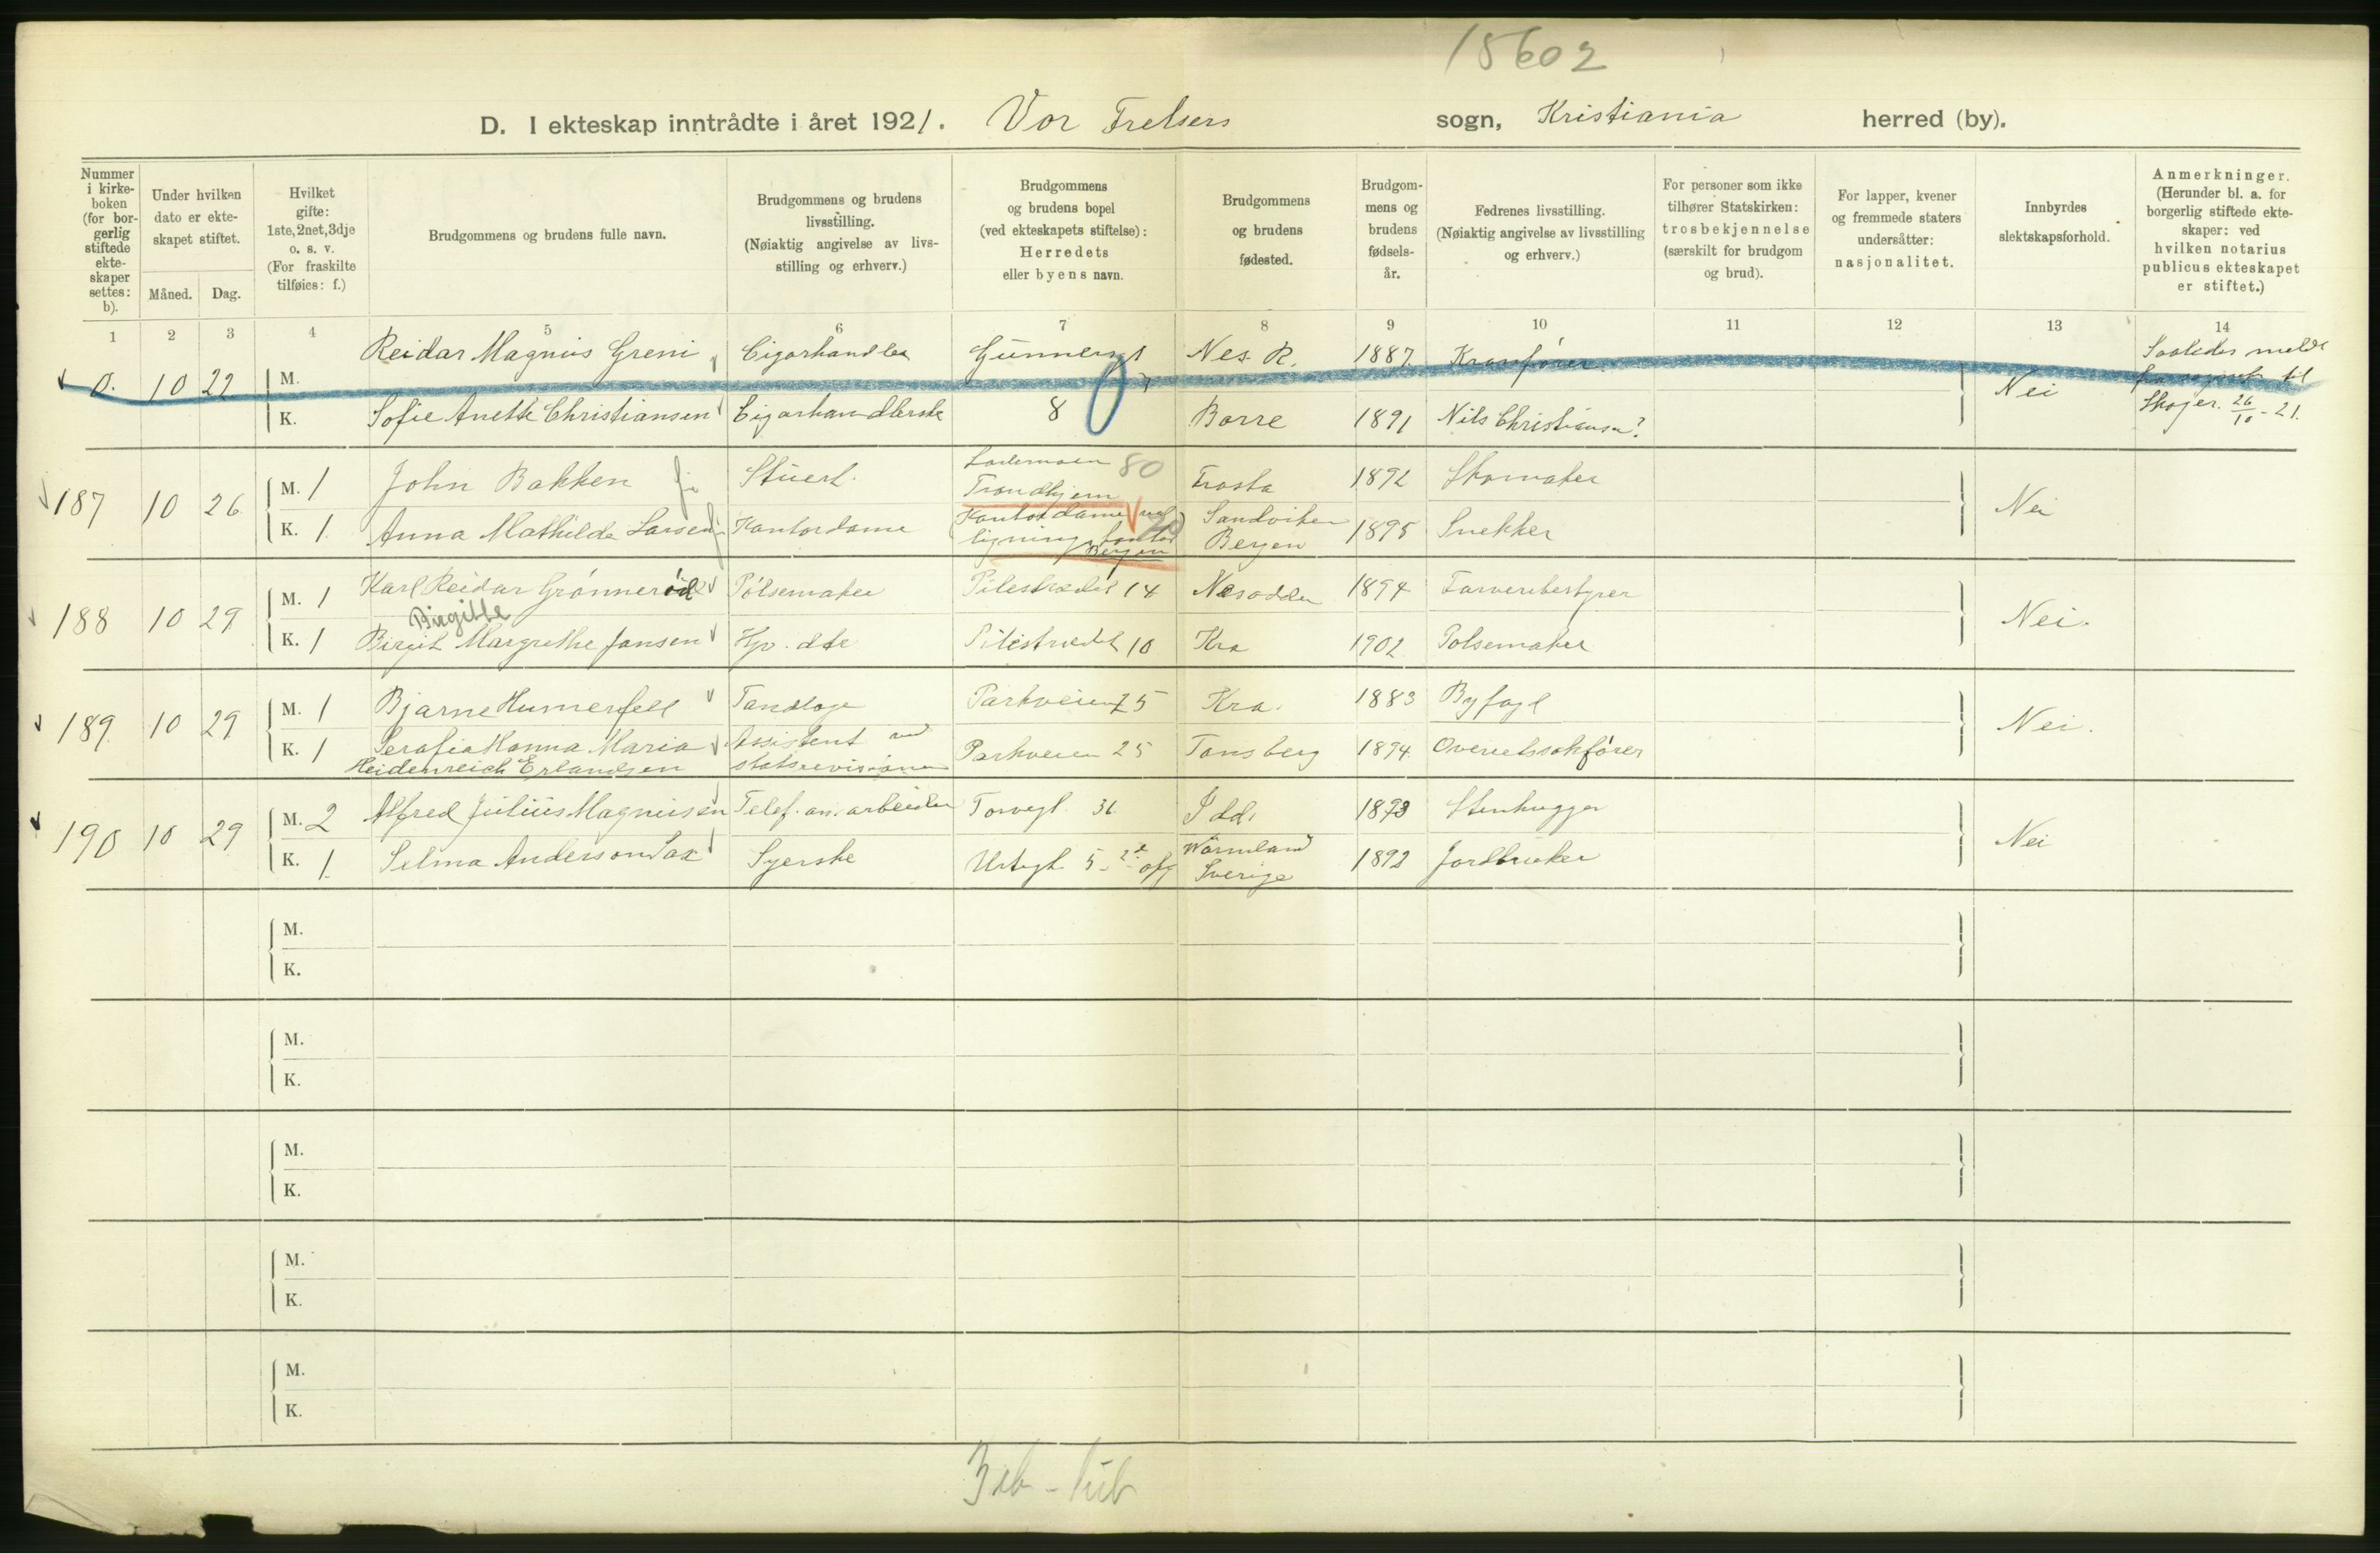 15602
D. I ekteskap inntrådte i året 1921. Vor Frelsers sogn, Kristiania herred (by).
Nummer i kirke-boken (for bor-gerlig stiftede ekte-skaper settes: b).
Under hvilken dato er ekte-skapet stiftet.
Måned. Dag.
Hvilket gifte: 1ste, 2net, 3dje o. s. v. (For fraskilte tilføies: f.)
Brudgommens og brudens fulle navn.
Brudgommens og brudens livsstilling. (Nøiaktig angivelse av livs-stilling og erhverv.)
Brudgommens og brudens bopel (ved ekteskapets stiftelse): Herredets eller byens navn.
Brudgommens og brudens fødested.
Brudgom-mens og brudens fødsels-år.
Fedrenes livsstilling. (Nøiaktig angivelse av livsstilling og erhverv.)
For personer som ikke tilhører Statskirken: trosbekjennelse (særskilt for brudgom og brud).
For lapper, kvener og fremmede staters undersåtter: nasjonalitet.
Innbyrdes slektskapsforhold.
Anmerkninger. (Herunder bl. a. for borgerlig stiftede ekte-skaper: ved hvilken notarius publicus ekteskapet er stiftet.)
1 2 3 4 5 6 7 8 9 10 11 12 13 14
0. 10 22 M. Reidar Magnus Greni Cigarhandler Nes. R. 1887 Nei
K. Sofie Anette Christiansen Cigarhandlerske 8 Borre 1891 Nils Christiansen?
Skoger. 26/10 - 21.
187 10 26 M. 1 John Bakken Stuert. Trondhjem 80 Frosta 1892 Skomaker Nei
K. 1 Anna Mathilde Larsen Kontordame Kontordame ved ligningskontor Bergen Sandviken Bergen 1895 Snekker
188 10 29 M. 1 Karl Reidar Grønnerød Pølsemaker Pilestrædet 14 Nesodden 1894 Farveribestyrer Nei.
Birgitte
K. 1 Birgit Margrethe Jansen Hp. dtr Pilestrædet 10 Kra 1902 Pølsemaker
189 10 29 M. 1 Bjarne Humerfelt Tandlæge Parkveien 25 Kra. 1883 Byfogd Nei.
K. 1 Serafia Hanna Maria Heidenreich Erlandsen Assistent ved statsrevisionen Parkveien 25 Tønsberg 1894 Overretssakfører
190 10 29 M. 2 Alfred Julius Magnussen Telef. an. arbeider Torvegt 36 Idd. 1873 Stenhugger Nei
K. 1 Selma Anderson Sax Syerske Urtegt 5 Wärmland Sverige 1892 Jordbruker
M.
K.
M.
K.
M.
K.
M.
K.
M.
K.